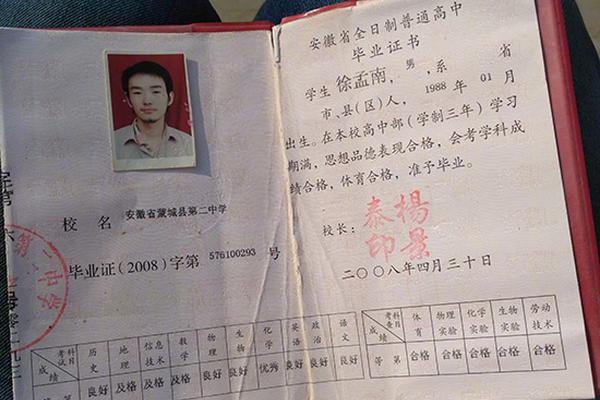 校名 安徽省蒙城县第二中学
毕业证(2008)字第 576100293 号
考试科目 成绩 历史 地理 信息技术 数学 物理 生物 化学 英语 政治 语文
等第 良好 及格 及格 及格 良好 良好 优秀 良好 良好 良好
安徽省全日制普通高中
毕业证书
学生 徐孟南,男,系 省
市、县(区)人,1988 年 01 月
出生。在本校高中部(学制三年)学习
期满,思想品德表现合格,会考学科成
绩合格,体育合格,准予毕业。
校长:
楊景泰印
二〇〇八年四月三十日
考查科目 成绩 体育 物理实验 化学实验 生物实验 劳动技术
等第 合格 合格 合格 合格 合格